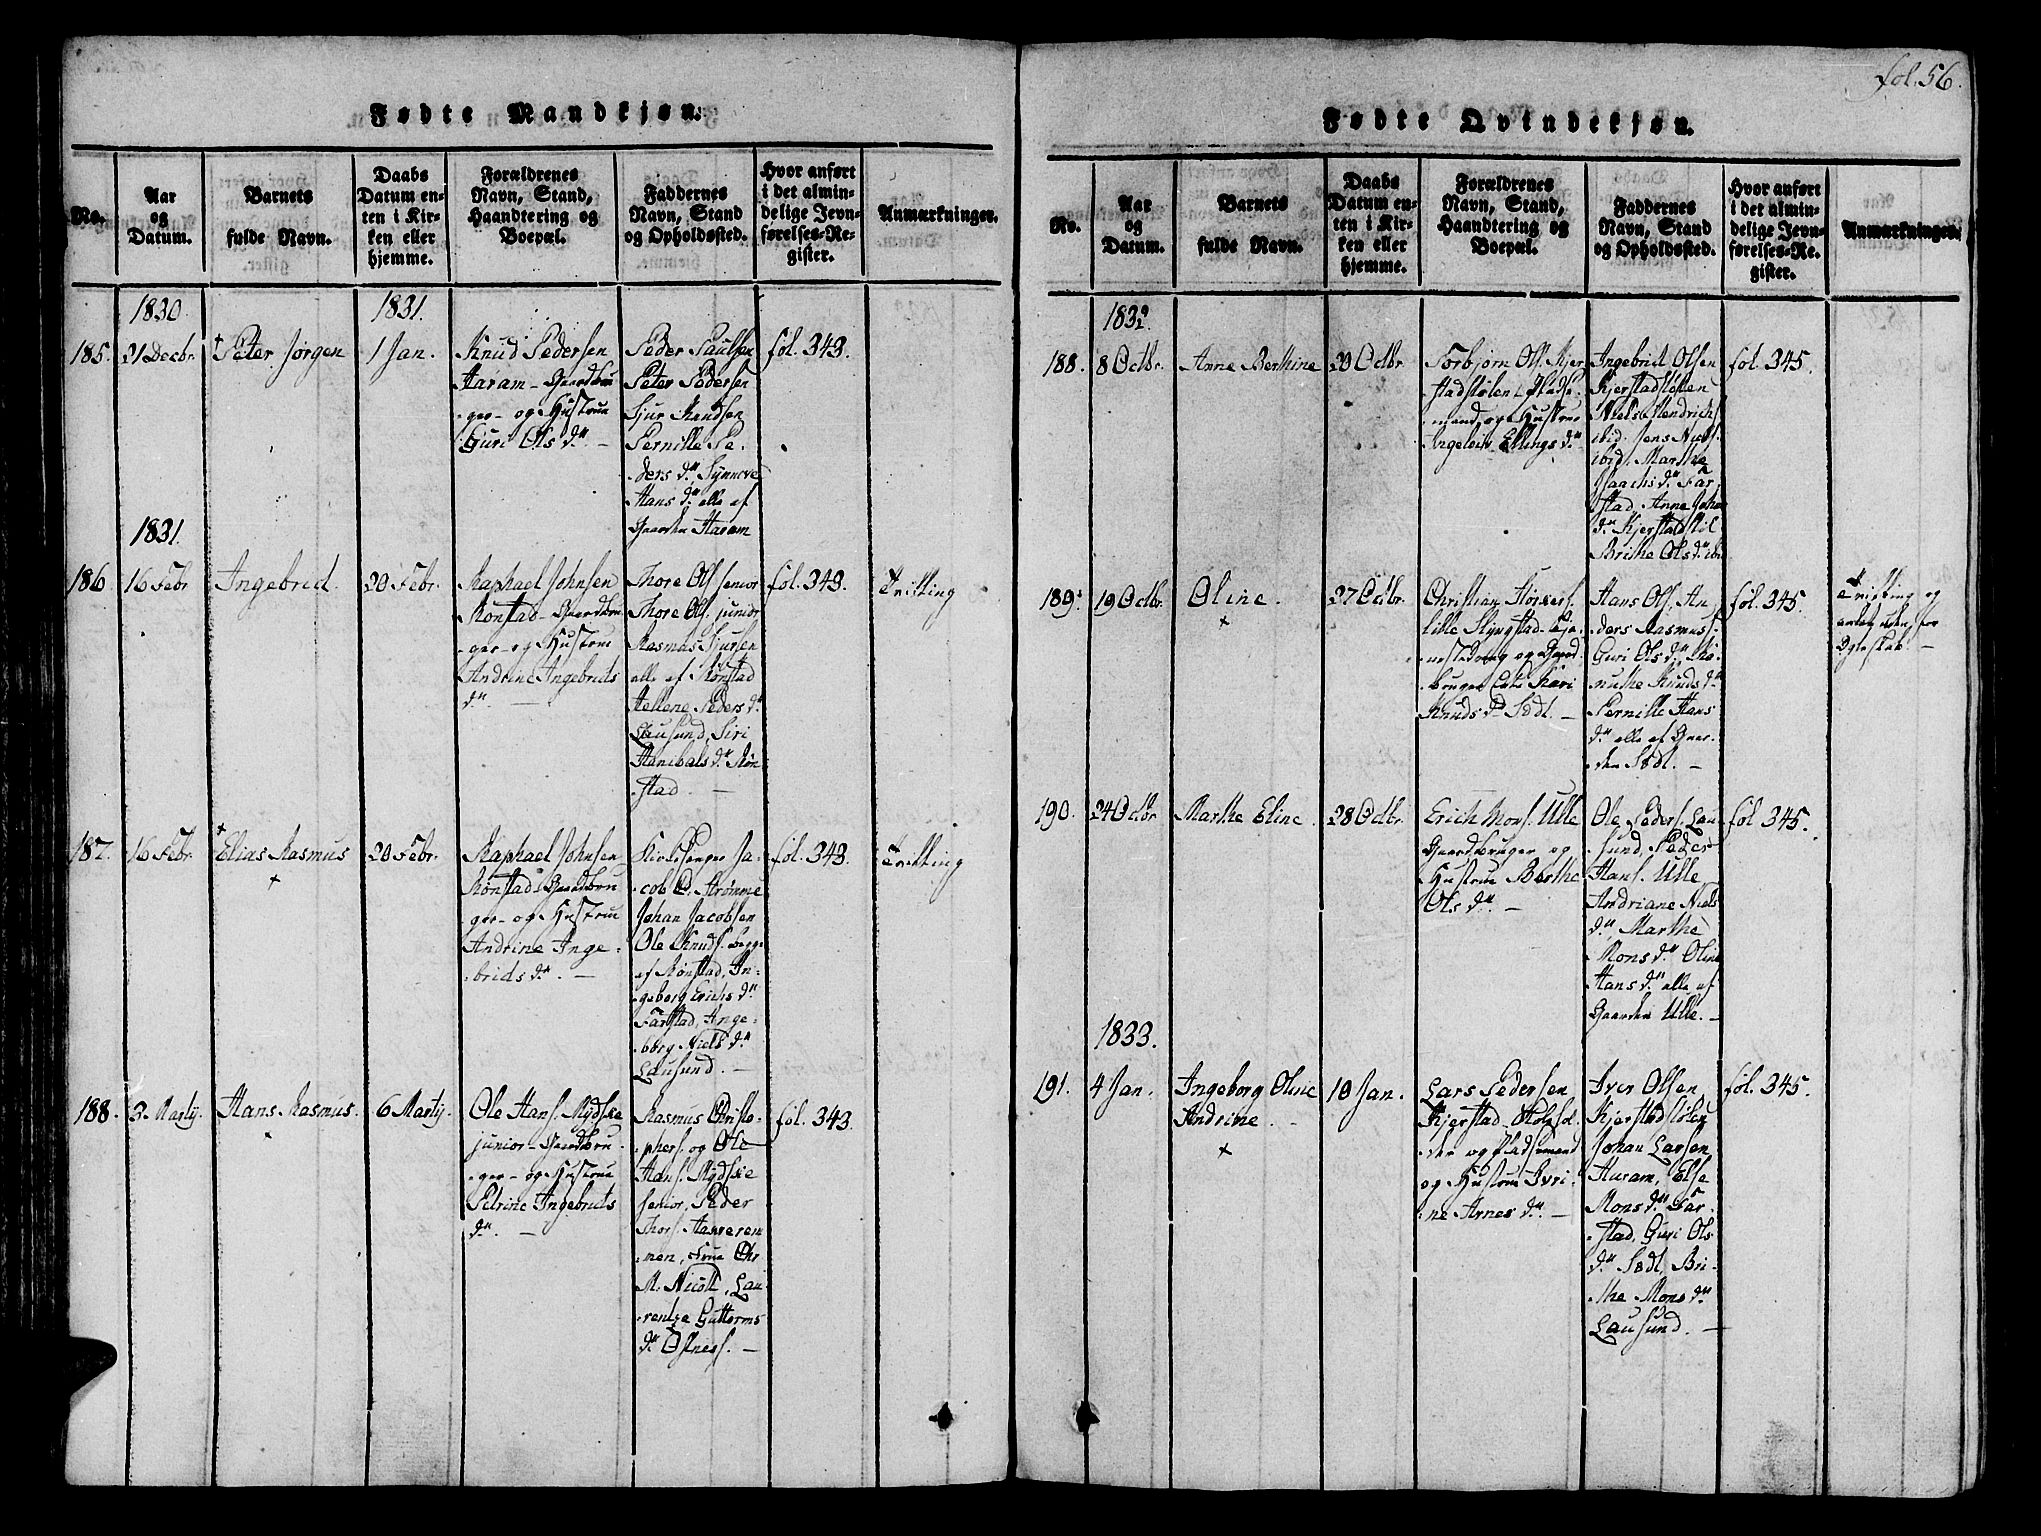 Fødte Mandkjøn.
No.
Aar
og
Datum.
Barnets
fulde Navn.
Daabs
Datum en-
ten i Kir-
ken eller
hjemme.
Forældrenes
Navn, Stand,
Haandtering og
Boepæl.
Faddernes
Navn, Stand
og Opholdssted.
Hvor anført
i det almin-
delige Jevn-
førelses-Re-
gister.
Anmærkninger.
1830
1831.
185.
21 Decbr.
Peter Jørgen
1 Jan.
Knud Pedersen
Haram - Gaardbru
ger - og Hustrue
Guri Ols dr. -
Peder Paulsen
Peter Pedersen
Sjur Knudsen
Pernille Pe-
ders dr. Synneve
Hans dr. alle af
Gaarden Haram
fol. 343.
1831.
186
16 Febr
Ingebrid.
20 Febr.
Raphael Johnsen
Rønstad - Gaardbru
ger - og Hustrue
Andrine Ingebrits
dr. -
Thore Ols. senior
Thore Ols. junior
Rasmus Sjursen
alle af Rønstad
Hellene Peders dr.
Lausund, Siri
Hanibals dr. Røn-
stad. -
fol. 343.
Tvilling
187.
16 Febr.
Elias Rasmus
+
20 Febr.
Raphael Johnsen
Rønstad - Gaardbru
ger - og Hustrue
Andrine Inge-
brids dr. -
Kirkesanger Ja-
cob C. Strømme
Johan Jacobsen
Ole Knuds. begge
af Rønstad, In-
geborg Erichs dr.
Farstad, Inge-
borg Niels dr.
Lausund. -
fol. 343.
Tvilling
188.
2 Marty.
Hans Rasmus.
6 Marty.
Ole Hans. Mydsæ
junior - Gaardbru
ger - og Hustrue
Petrine Ingebrits
dr. -
Rasmus Christo-
phers. og Ole
Hans. Mydsæe
senior, Peder
Thors.
men, Frue Chr
M. Nicoll, Lau-
rentze Guttorms
dr. Østnes. -
fol. 343.
fol. 56.
Fødte Qvindekjøn.
No.
Aar
og
Datum.
Barnets
fulde Navn.
Daabs
Datum en-
ten i Kir-
ken eller
hjemme.
Forældrenes
Navn, Stand,
Haandtering og
Boepæl.
Faddernes
Navn, Stand
og Opholdssted.
Hvor anført
i det almin-
delige Jevn-
førelses-Re-
gister.
Anmærkninger.
1832.
188.
8 Octbr.
Anne Berthine
20 Octbr.
Torbjørn Ols. Kjer
stadstølen - Pladse-
mand, og Hustrue
Ellings dr.
Ingebrid Olsen
Kjerstadstølen
Niels Hendrichs.
ibid. Jens Niels.
ibid. Marthe
Isaachs dr. Far-
stad, Anne Johns
dr. Kjerstad
Brithe Ols dr. ibi
fol. 345.
189.
19 Octbr.
Oline.
+
27 Octbr.
Christian
lille Slyngstad
og Gaard-
bruger Enke Kari
Knuds dr. Sødl. -
Hans Ols. An-
ders Rasmuss.
Guri Ols dr.
Knuds dr.
Pernille Hans
dr. alle af Gaar-
den Sødl. -
fol. 345.
og
uden for
Egteskab. -
190.
24 Octbr
Marthe Eline.
28 Octbr.
Erich Mons. Ulle
Gaardbruger og
Hustrue Berthe
Ols dr. -
Ole Peders. Lau-
sund, Peder
Hans. Ulle
Andriane Niels
dr. Marthe
Mons dr. Oline
Hans dr. alle af
Gaarden Ulle. -
fol 345.
1833.
191.
4 Jan.
Ingeborg Oline
Andrine. -
+
10 Jan.
Lars Pedersen
Kjerstad
og Pladsemand
og Hustrue Ivri-
ne Arnes dr. -
Iver Olsen
Kjerstadstølen
Johan Larsen
Haram, Else
Mons dr. Far-
stad, Guri Ols
dr. Sødl, Bri-
the Mons dr.
Lausund. -
fol. 345.